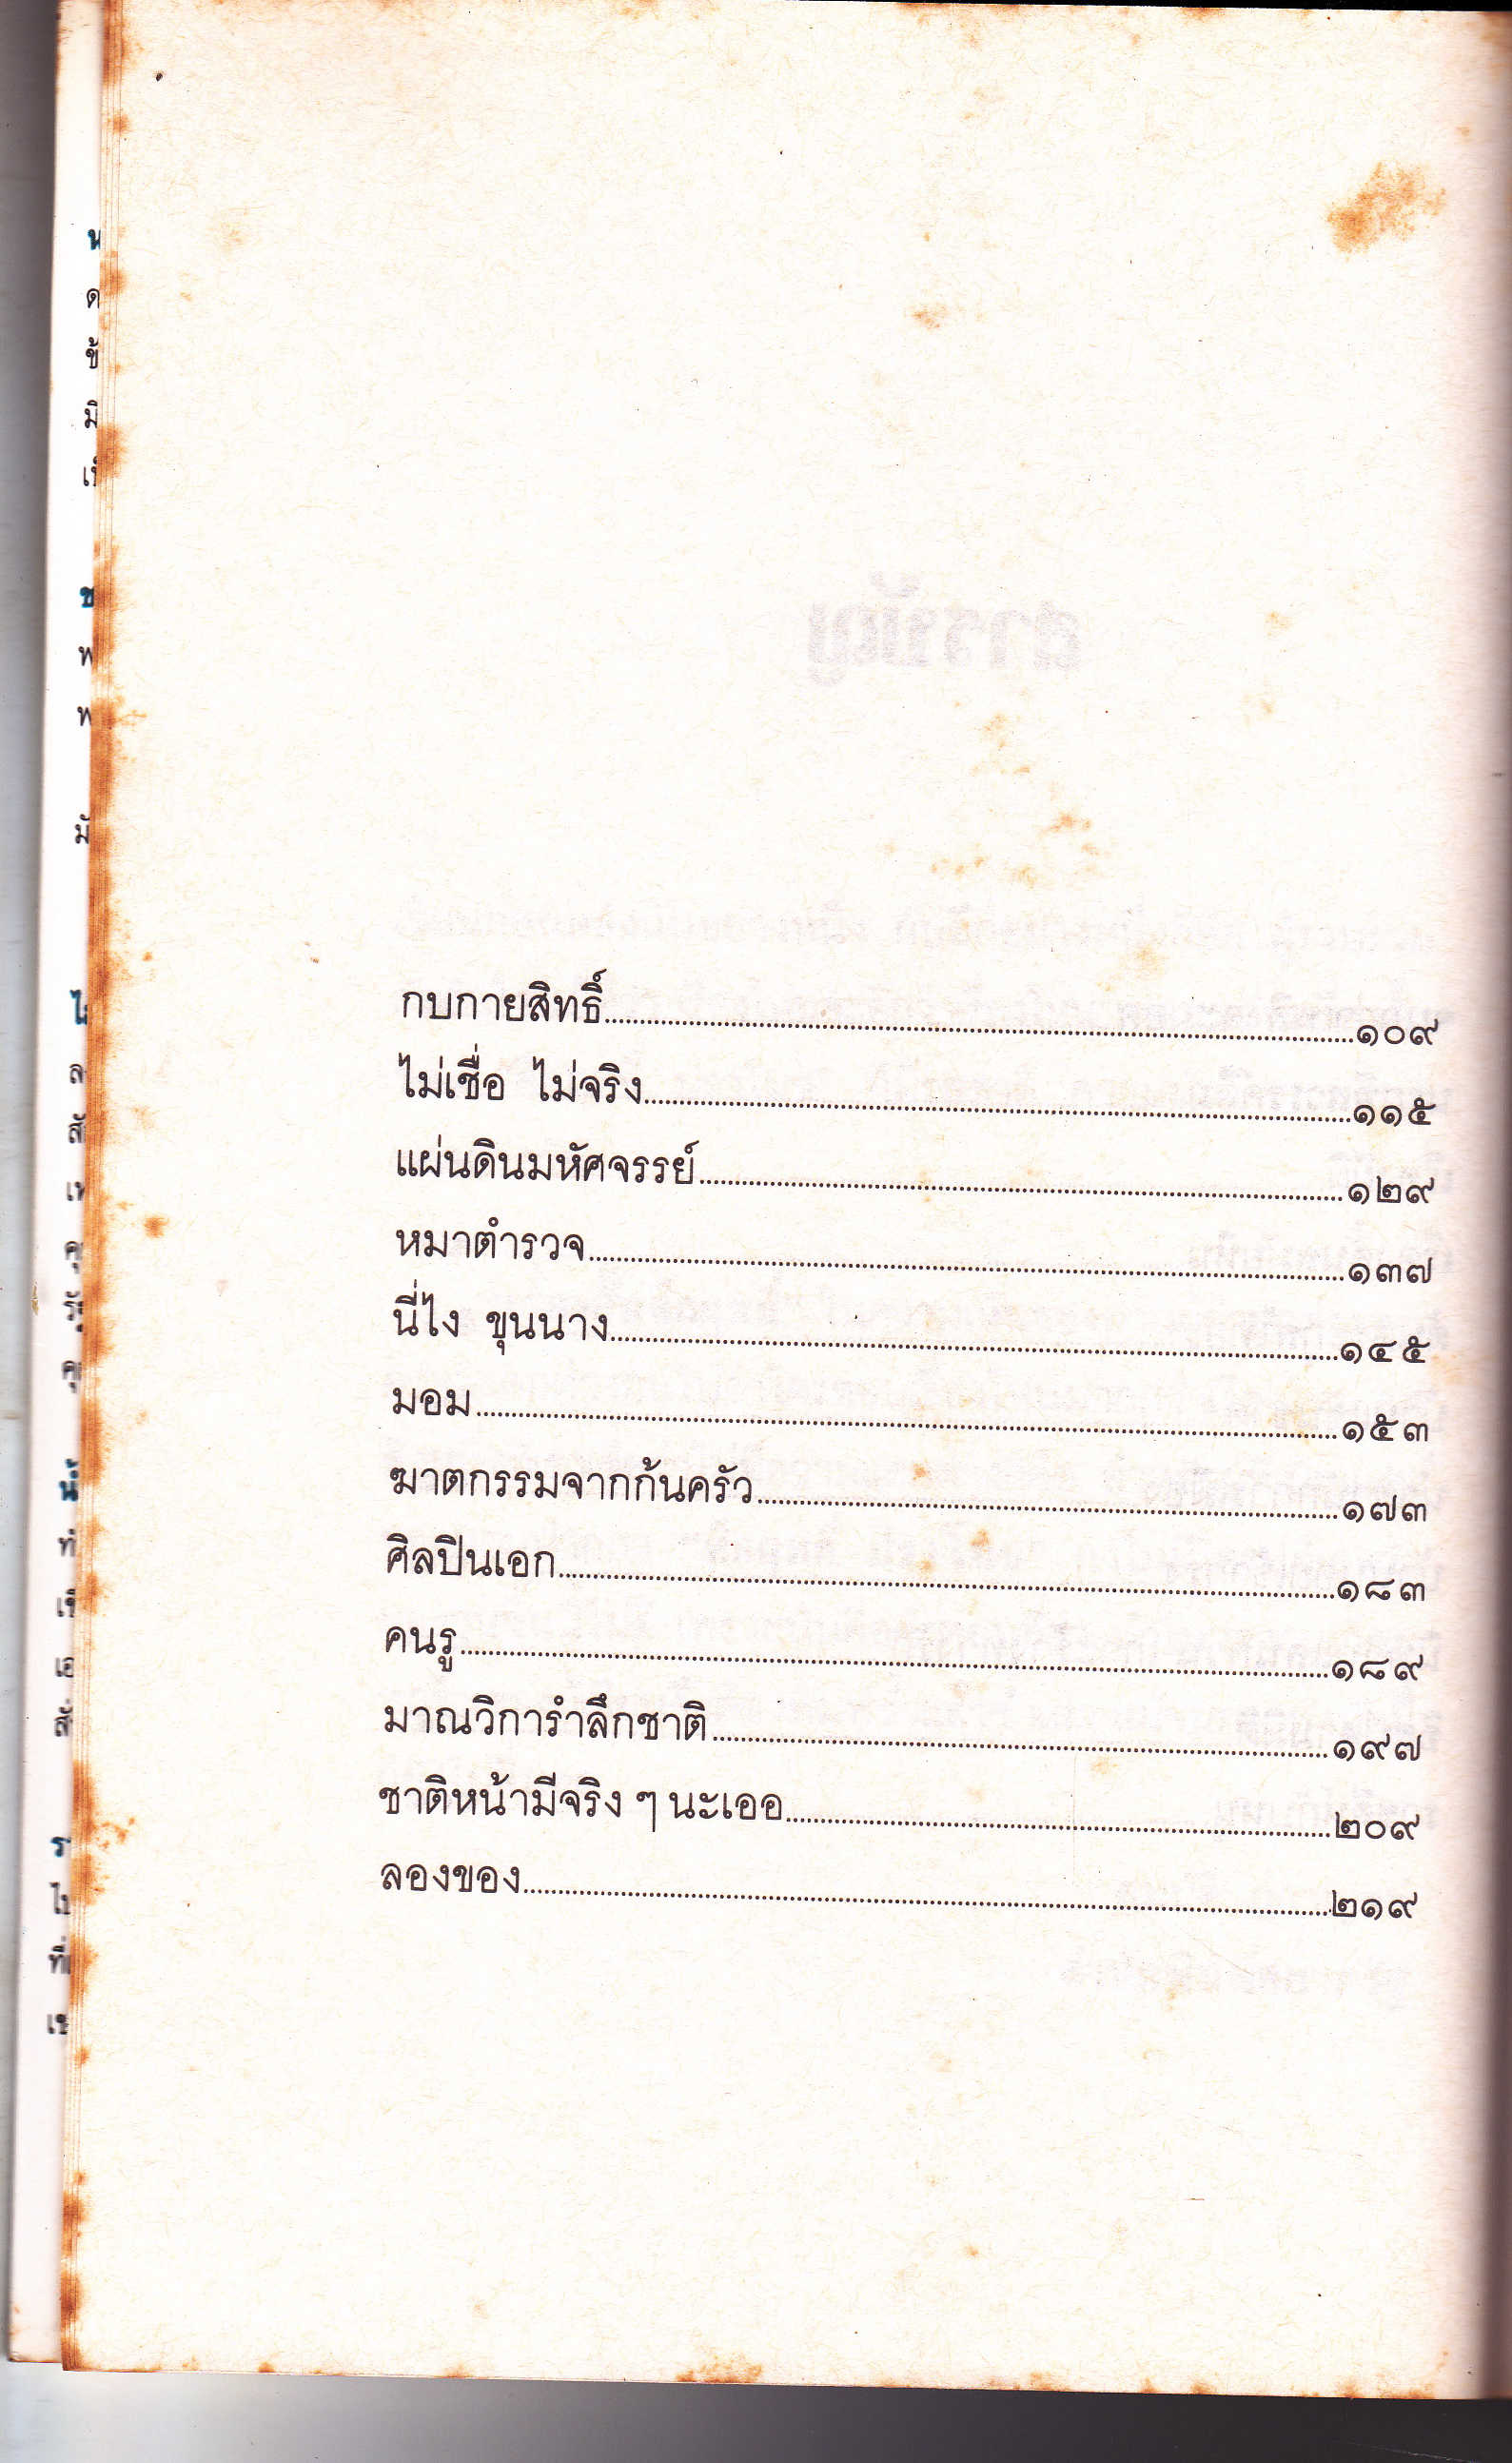 กบกายสิทธิ์........................๑๐๙
ไม่เชื่อ ไม่จริง........................๑๑๕
แผ่นดินมหัศจรรย์........................๑๒๙
หมาตำรวจ........................๑๓๗
นี่ไง ขุนนาง........................๑๔๕
มอม........................๑๕๓
ฆาตกรรมจากก้นครัว........................๑๗๓
ศิลปินเอก........................๑๘๓
คนรู........................๑๘๙
มาณวิการำลึกชาติ........................๑๙๗
ชาติหน้ามีจริง ๆ นะเออ........................๒๐๙
ลองของ........................๒๑๙